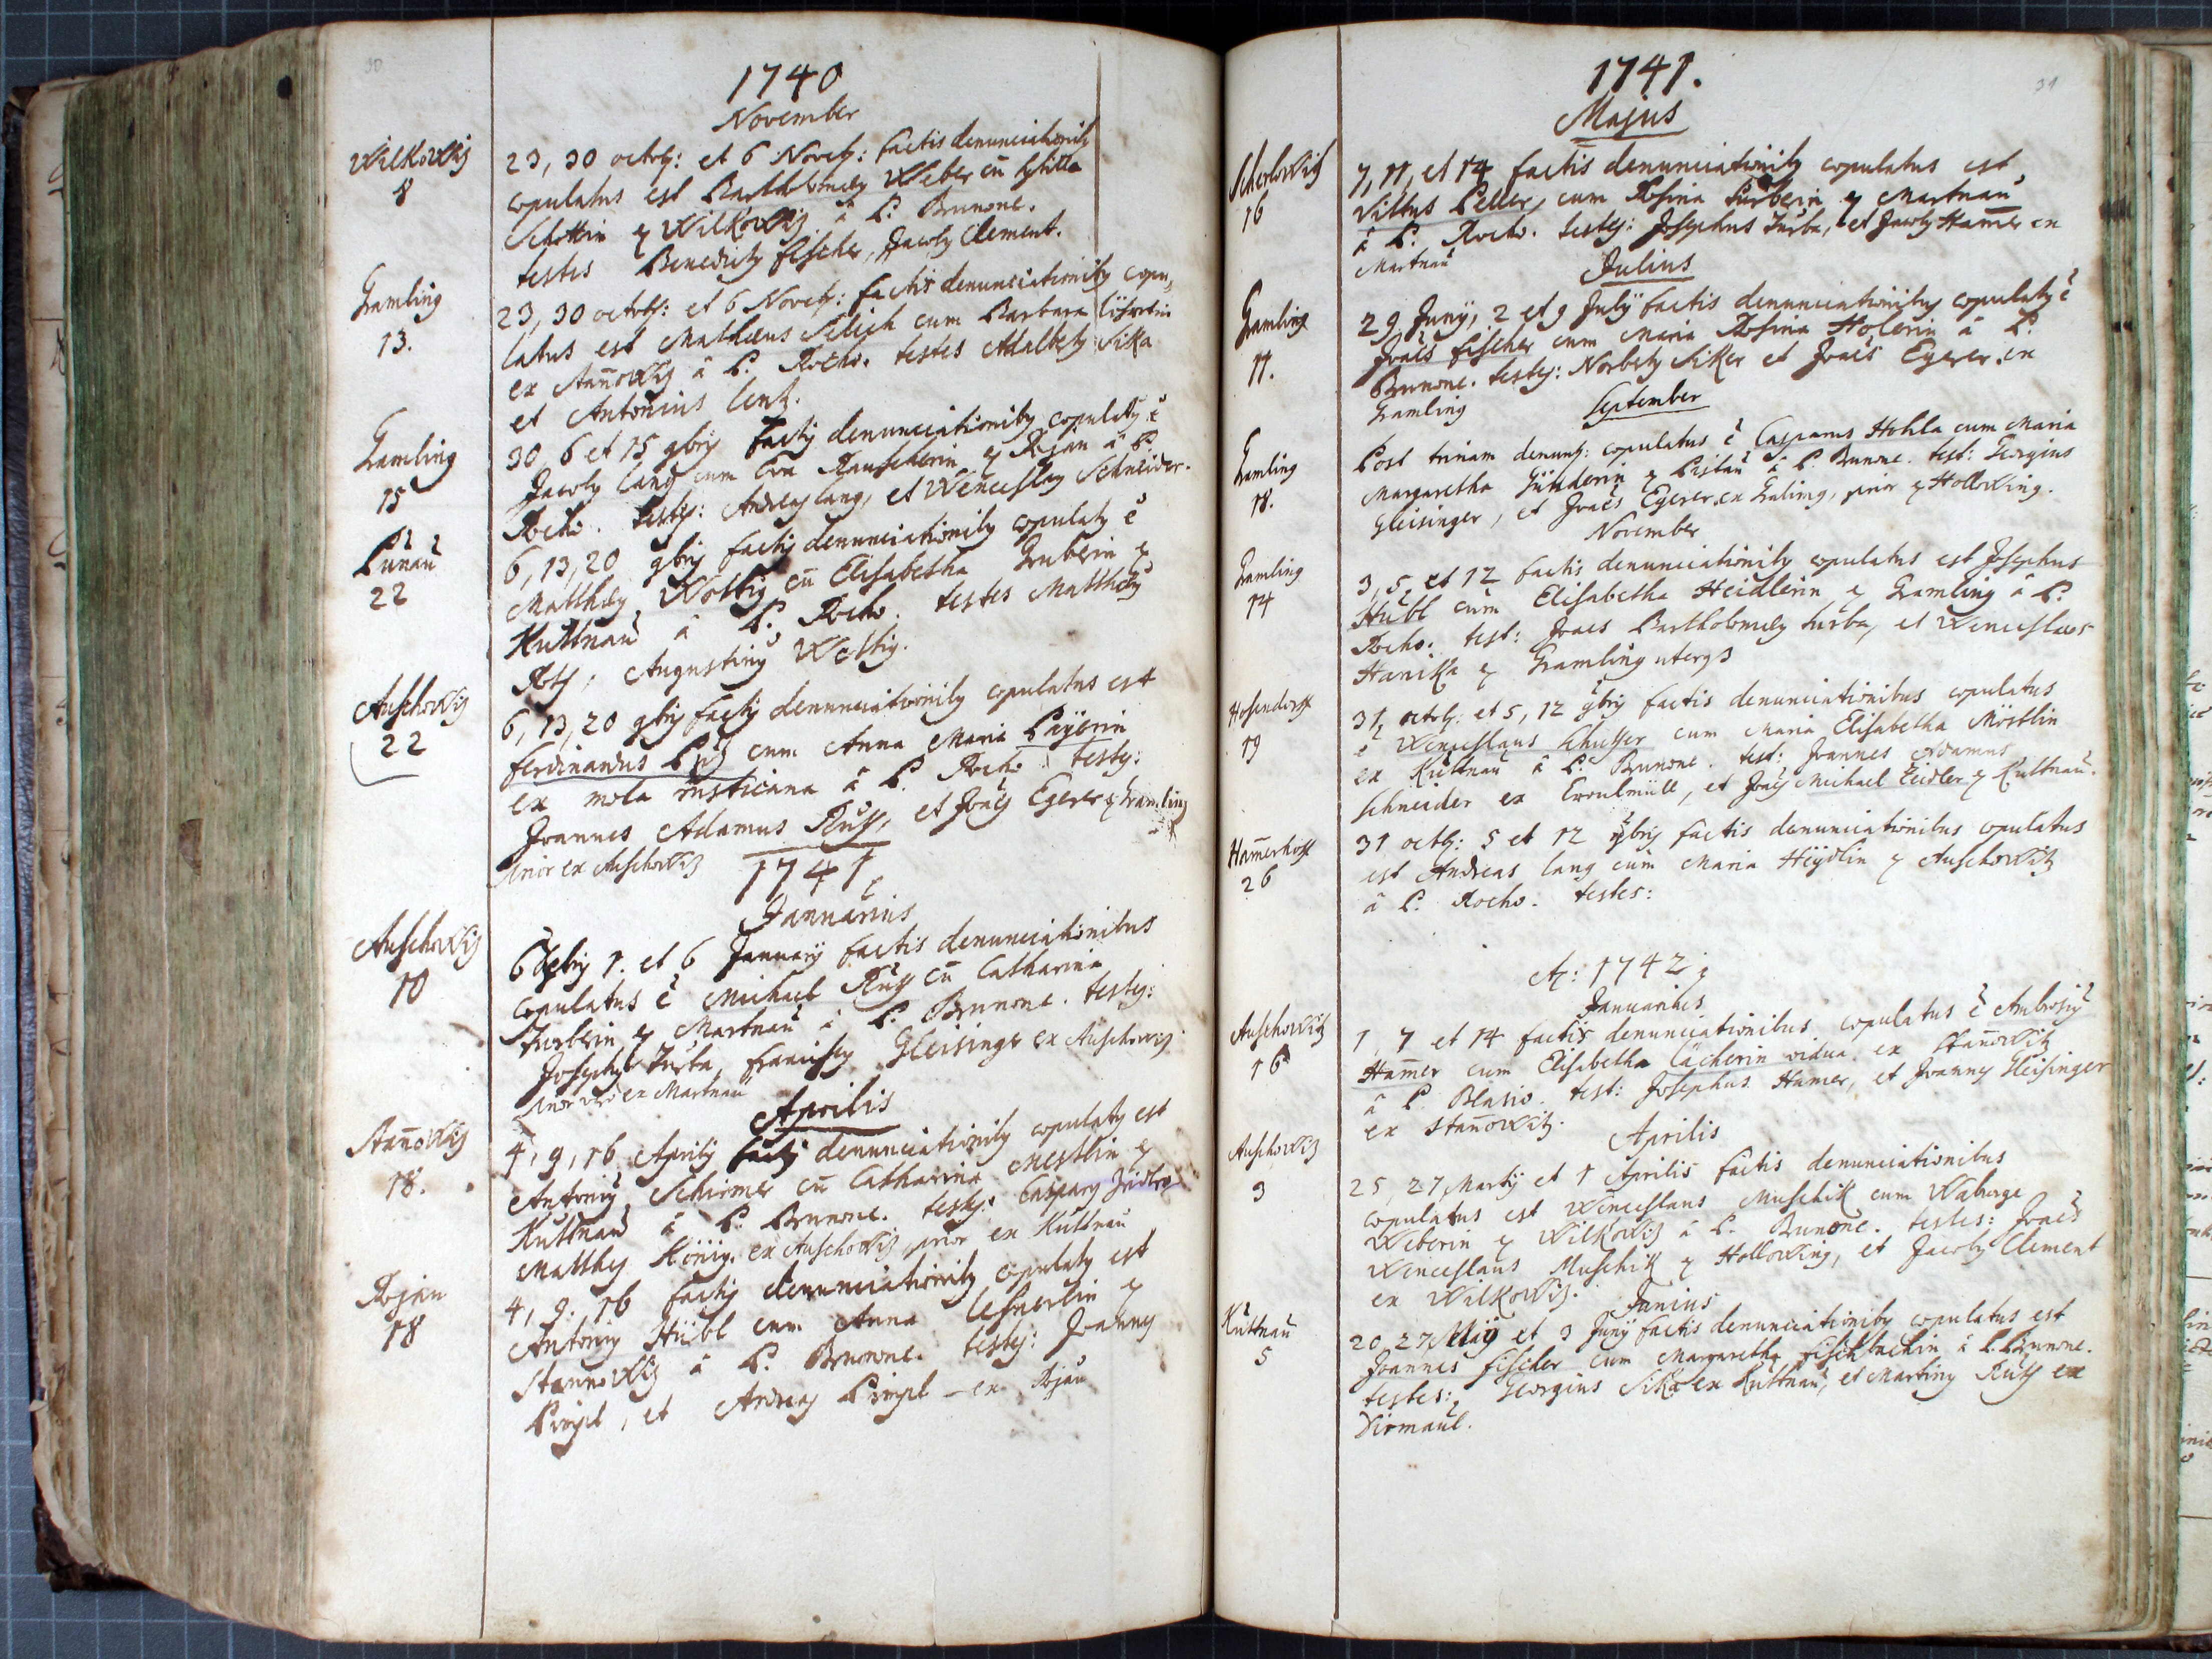 30
1740
November
Wilkowiz
8
23, 30 octob: et 6 Noveb: factis denunciationib
copulatus est Bartholomeg Weber cu Sybilla
Schottin ex Wilkowiz â P. Brunone.
testes Benedictg fischer, Jacobg Clement.
Gramling
13.
23, 30 octob: et 6 Noveb: factis denunciationibg copu,
latus est Mathæus Selich cum Barbara
ex Stanowiz â P. Rocho. testes Adalbertg Sika
et Antonius lenk.
Gramling
15
30, 6 et 15 9bris factis denunciationibg copulatg è
Jacobg lang cum Eva Rauscherin ex Rojau â P.
Rocho. testes: Andreas lang, et Wenceslag Schneider.
Punau
22
6, 13, 20 9bris factis denunciationibg copulatg è
Matthæg Wottig cu Elisabetha Gruberin ex
Kuttnau â P. Rocho. testes Matthæg
Roth; Augusting Wottig.
Auschowiz
22
6, 13, 20 9bris factis denunciationibg copulatus est
ferdinandus cum Anna Maria Paÿerin
ex mola rusticana â P. Rocho. testes:
Joannes Adamus Ruß, et Joaes Egerer ex Gramling
prior ex Auschowiz
1741
Januarius
Auschowiz
10
6 1. et 6 Januarÿ factis denunciationibus
copulatus è Michael Ruß cu Catharina
Turbein ex Martnau â P. Brunone. testes:
Josephg Turba, franciscg Gleisinger ex Auschowiz
prior vero ex Martnau
Aprilis
Stanowiz
18.
4, 9, 16 Aprilis factis denunciationibg copulatg est
Antonig Schirmer cu Catharina Mestlin ex
Kuttnau â P. Brunone. testes: Casparg Zeidler
Matthæg König. ex Auschowiz, prior ex Kuttnau
Rojau
18
4, 9. 16 factis denunciationibg copulatg est
Antonig Hübl cum Anna Lesnerlin ex
Stannowiz â P. Brunone. testes: Joannes
Pimpl, et Andreas Pimpl ex Rojau
31
1741.
Majus
Scherlowitz
16
7, 11, et 14 factis denunciationibg copulatus est
Vittus Peller, cum Rosina Turbein ex Martnau
â P. Rocho. testes: Josephus Turba, et Jacobg Hamer ex
Martnau
Julius
Gramling
11.
29 Junÿ, 2 et 9 Julÿ factis denunciationibus copulatg è
Joaes fischer cum Maria Rosina Holerin â P.
Brunone. testes: Norbertg Siker et Joaes Egerer. ex
Gramling
September
Gramling
18.
Post trinam denunt: copulatus è Casparus Hohla cum Maria
Margaretha Günderin ex Pistau â P. Brunone. test: Georgius
Gleisinger, et Joaes Egerer. ex Graling, prior ex Hollowing.
November
Gramling
14
3, 5, et 12 factis denunciationibg copulatus est Josephus
Hübl cum Elisabetha Heidlerin ex Gramling â P.
Rocho. test: Joaes Bartholomeg turba, et Wenceslaus
Hanika ex Gramling uterq3
Hosendorff
19
31, octob: et 5, 12 9bris factis denunciationibus copulatus
è Wenceslaus Schusser cum Maria Elisabetha Mörtlin
ex Kuttnau â P. Brunone. test: Joannes Adamus
Schneider ex, et Joaes Michael Zeidler ex Kuttnau.
Hamerhoff
26
31 octb: 5 et 12 9bris factis denunciationibus copulatus
est Andreas lang cum Maria Heÿdlin ex Auschowitz
â P. Rocho. testes:
A: 1742
Januarius
Auschowitz
16
1, 7 et 14 factis denunciationibus copulatus è Ambrosig
Hamer cum Elisabetha Lächerin vidua ex Stanowitz
â P. Blasio. test: Josephus Hamer, et Joannes Gleisinger
ex Stanowitz.
Aprilis
Auschowiz
3
25, 27, Martÿ et 1 Aprilis factis denunciationibus
copulatus est Wenceslaus Muschik cum Waburga
Weberin ex Wilkowiz â P. Brunone. testes: Joaes
Wenceslaus Muschik ex Hollowing, et Jacobg Clement
ex Wilkowiz.
Junius
Kuttnau
5
20, 27, Maÿ et 3 Junÿ factis denunciationibg copulatus est
Joannes fischer cum Margaretha fischbachin â P. Brunone.
testes: Georgius Sika ex Kuttnau, et Marting Ruß ex
Dirmaul.